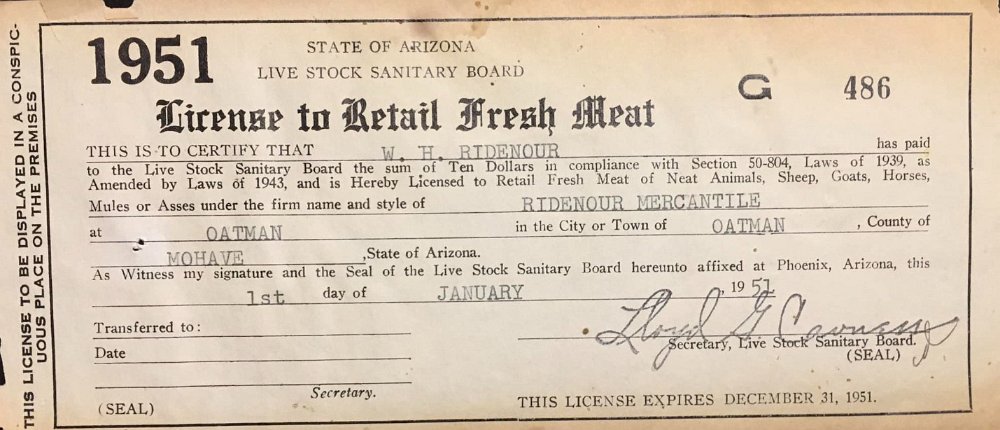 THIS LICENSE TO BE DISPLAYED IN A CONSPIC-
UOUS PLACE ON THE PREMISES
1951
STATE OF ARIZONA
LIVE STOCK SANITARY BOARD
G 486
License to Retail Fresh Meat
THIS IS TO CERTIFY THAT W. H. RIDENOUR has paid
to the Live Stock Sanitary Board the sum of Ten Dollars in compliance with Section 50-804, Laws of 1939, as
Amended by Laws of 1943, and is Hereby Licensed to Retail Fresh Meat of Neat Animals, Sheep, Goats, Horses,
Mules or Asses under the firm name and style of RIDENOUR MERCANTILE
at OATMAN in the City or Town of OATMAN , County of
MOHAVE ,State of Arizona.
As Witness my signature and the Seal of the Live Stock Sanitary Board hereunto affixed at Phoenix, Arizona, this
1st day of JANUARY 19 51
Transferred to:
Lloyd G
Secretary, Live Stock Sanitary Board.
(SEAL)
Date
Secretary.
(SEAL)
THIS LICENSE EXPIRES DECEMBER 31, 1951.